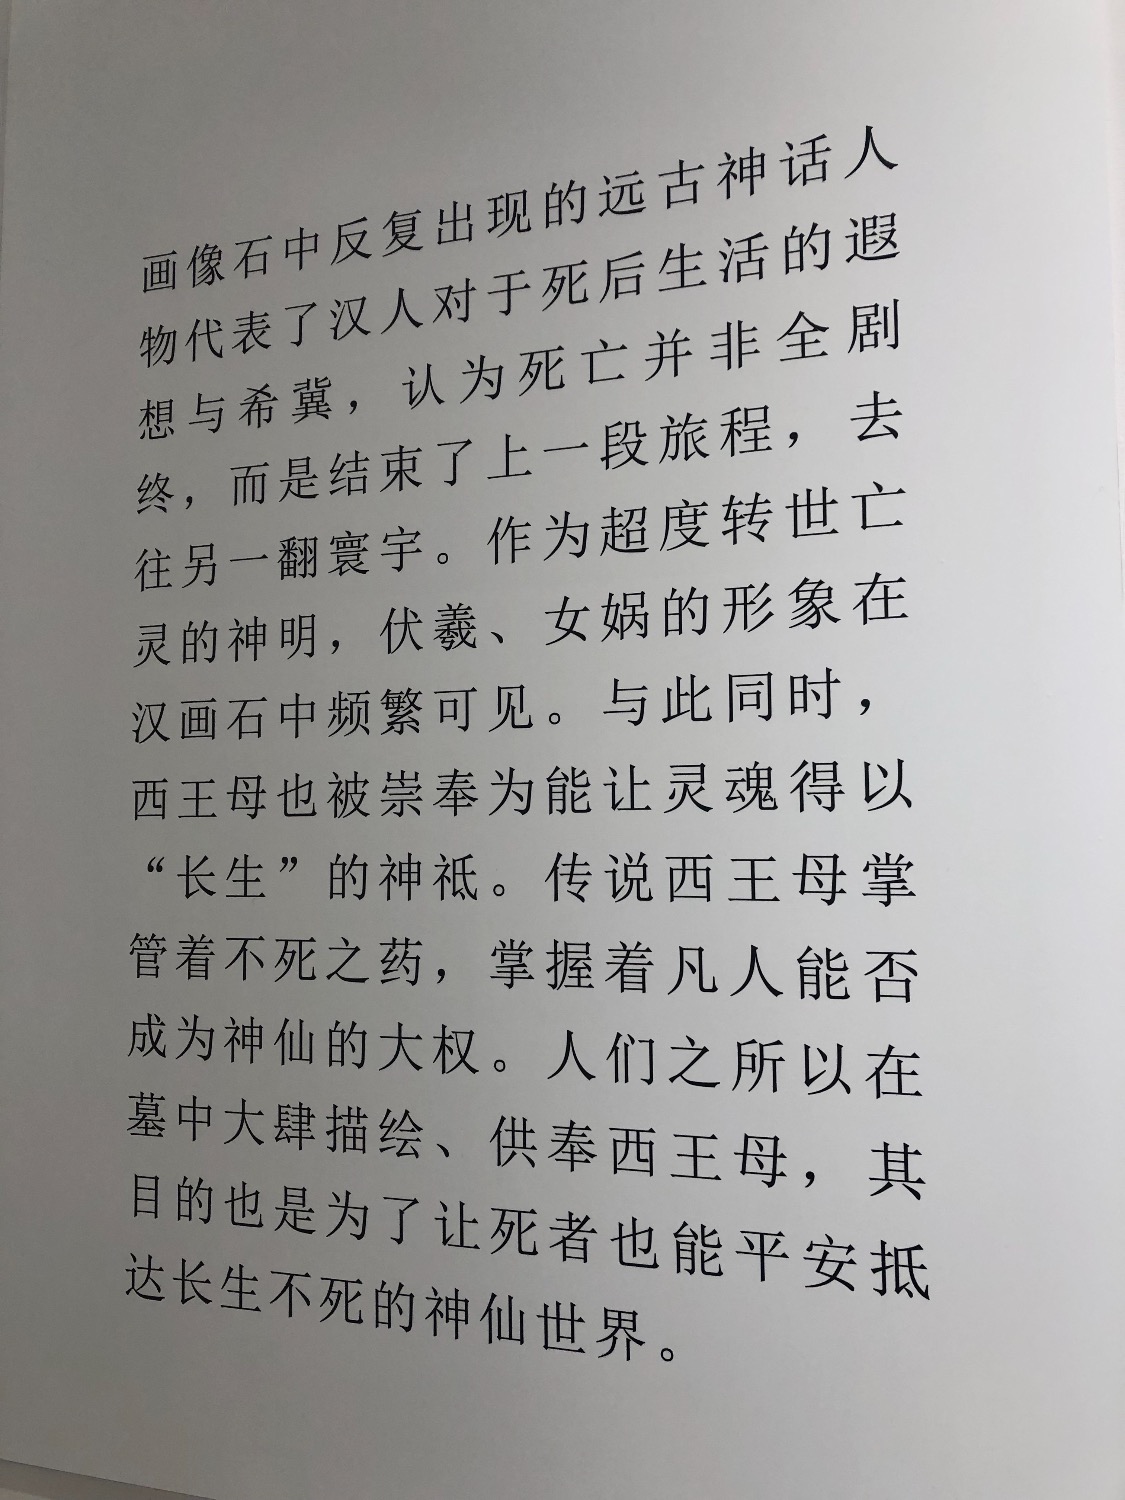 画像石中反复出现的远古神话人
物代表了汉人对于死后生活的遐
想与希冀，认为死亡并非全剧
终，而是结束了上一段旅程，去
往另一翻寰宇。作为超度转世亡
灵的神明，伏羲、女娲的形象在
汉画石中频繁可见。与此同时，
西王母也被崇奉为能让灵魂得以
“长生”的神祗。传说西王母掌
管着不死之药，掌握着凡人能否
成为神仙的大权。人们之所以在
墓中大肆描绘、供奉西王母，其
目的也是为了让死者也能平安抵
达长生不死的神仙世界。